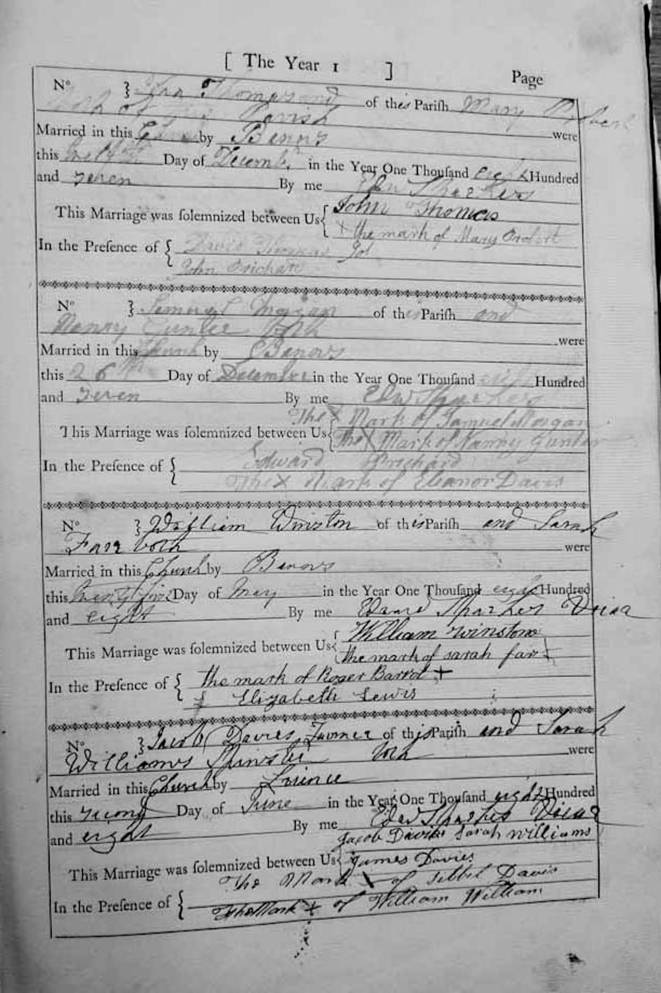 [ The Year 1 ] Page
No } John Thomas and of this Parish Mary Probert
both of this Parish were
Married in this Church by Banns
this Day of Decemb. in the Year One Thousand eight Hundred
and seven By me Edw Sparkes
This Marriage was solemnized between Us { John Thomas
X the mark of Mary Probert
In the Presence of { David Thomas
John Prichard
No } Samuel Morgan of this Parish and
Nanny Gunter both were
Married in this Church by Banns
this 26th Day of December in the Year One Thousand eight Hundred
and seven By me Edw Sparkes
The X Mark of Samuel Morgan
This Marriage was solemnized between Us { The X Mark of Nanny Gunter
In the Presence of { Edward Prichard
The X Mark of Eleanor Davis
No } William Winston of this Parish and Sarah
Farr both were
Married in this Church by Banns
this Day of May in the Year One Thousand eight Hundred
and eight By me Edward Sparkes Vicar
This Marriage was solemnized between Us { William Winston
the mark of Sarah far X
In the Presence of { the mark of Roger Barrol +
Elizabeth Lewis
No } Jacob Davies, Farmer of this Parish and Sarah
Williams Spinster both were
Married in this Church by Licence
this second Day of June in the Year One Thousand eight Hundred
and eight By me Edw Sparkes Vicar
Jacob Davies Sarah Williams
This Marriage was solemnized between Us { James Davies
The Mark X of Sibbel Davis
In the Presence of { The Mark X of William William